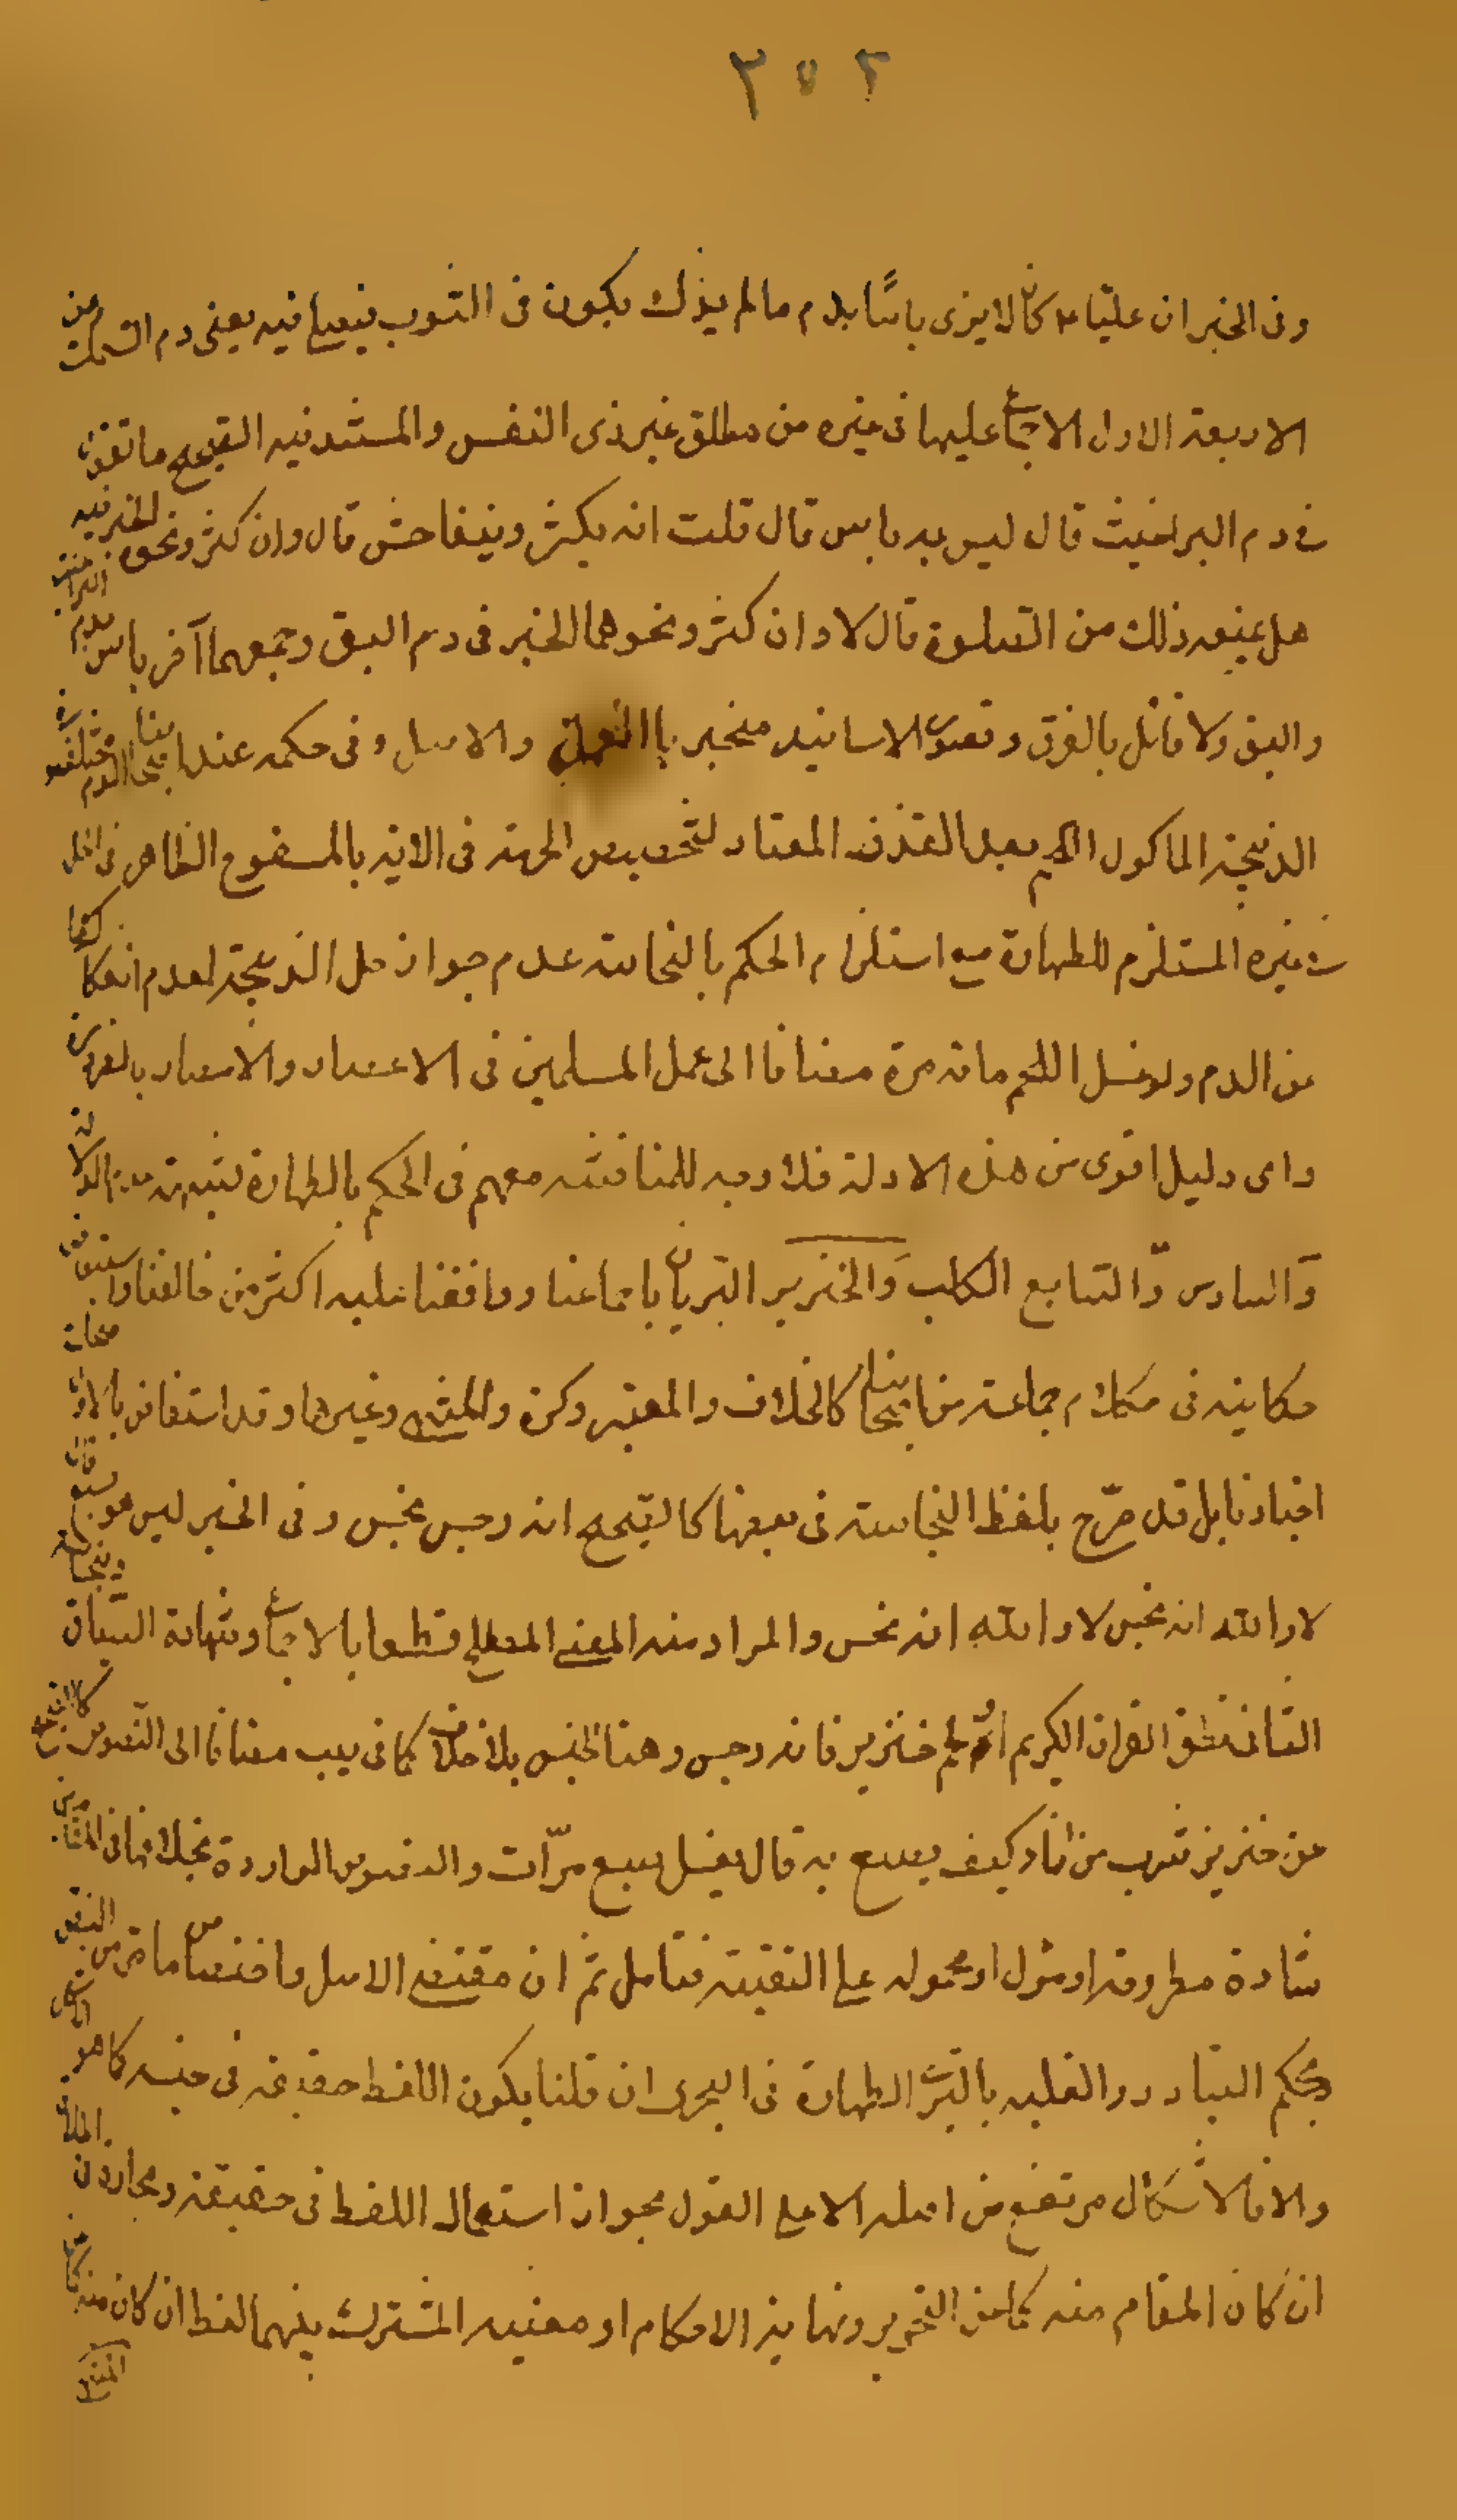 ٣٥٢
وفى الخبر ان عليّا ع كان لا يرى باسًا بدم ما لم يذك يكون فى الثوب فيصلى فيه يعنى دم السمك
الاربعة الاول الاجماع عليها فى غيره من مطلق غير ذى النفس والمستند فيه الصحيح ما تقول
فى دم البراغيث قال ليس به باس قال قلت انه يكثر ويتفاحش قال وان كثر ونحوه الخبر فيه
هل يمنعه ذلك من الصلوة قال لا وان كثر ونحوهما الخبر فى دم البق وجمعهما آخر باس بدم البراغيث
والبق ولا قائل بالفرق وقصور الاسانيد منجبر بالعمل والاصل وفى حكمه عند اصحابنا الدم المتخلف فى
الذبيحة الماكول اللحم بعد القذف المعتاد لتخصيص الحرمة فى الاية بالمسفوح الظاهر فى حل
غيره المستلزم للطهارة مع استلزام الحكم بالنجاسة عدم جواز حل الذبيحة لعدم انفكاكها
عن الدم ولو غسل اللحم مائة مرة مضافا الى عمل المسلمين فى الاعصار والامصار بالضرورة
واى دليل اقوى من هذه الادلة فلا وجه للمناقشة معهم فى الحكم بالطهارة بشبهة عدم الدلالة
وَالسادس وَّالسابع الكلب وَالخنزير البريان باجماعنا ووافقنا عليه اكثر من خالفنا واستفيض
حكايته فى كلام جماعة من اصحابنا كالخلاف والمعتبر وكره والمنتهى وغيرها وقد استفاض بالاول
اخبارنا بل قد صرّح بلفظ النجاسة فى بعضها كالصحيح انه رجس نجس وفى الخبر ليس هو بنجس فقال
لا والله انه نجس لا والله انه نجس والمراد منه المعنى المصطلح قطعا بالاجماع وشهادة السياق وبنجاسة
الثانى نطق القران الكريم او لحم خنزير فانه رجس وهنا النجس بلا خلاف كما فى يب مضافا الى النصوص كالصحيح
عن خنزير شرب من اناء كيف يصنع به قال يغسل سبع مرّات والنصوص الواردة بخلافها فى المقامين
شاذة مطروحة او مأول او محمولة على التقية فتامل ثم ان مقتضى الاصل واختصاص ما مر من النص
بحكم التبادر والغلبة بالبرى الطهارة فى البحرى ان قلنا بكون اللفظ حقيقة فى جنسه كما هو
والا فالاشكال مرتفع من اصله الا على القول بجواز استعمال اللفظ فى حقيقته ومجازه
ان كان المقام منه كما عن التحرير ونهاية الاحكام او معنييه المشترك بينهما لفظا ان كان منه